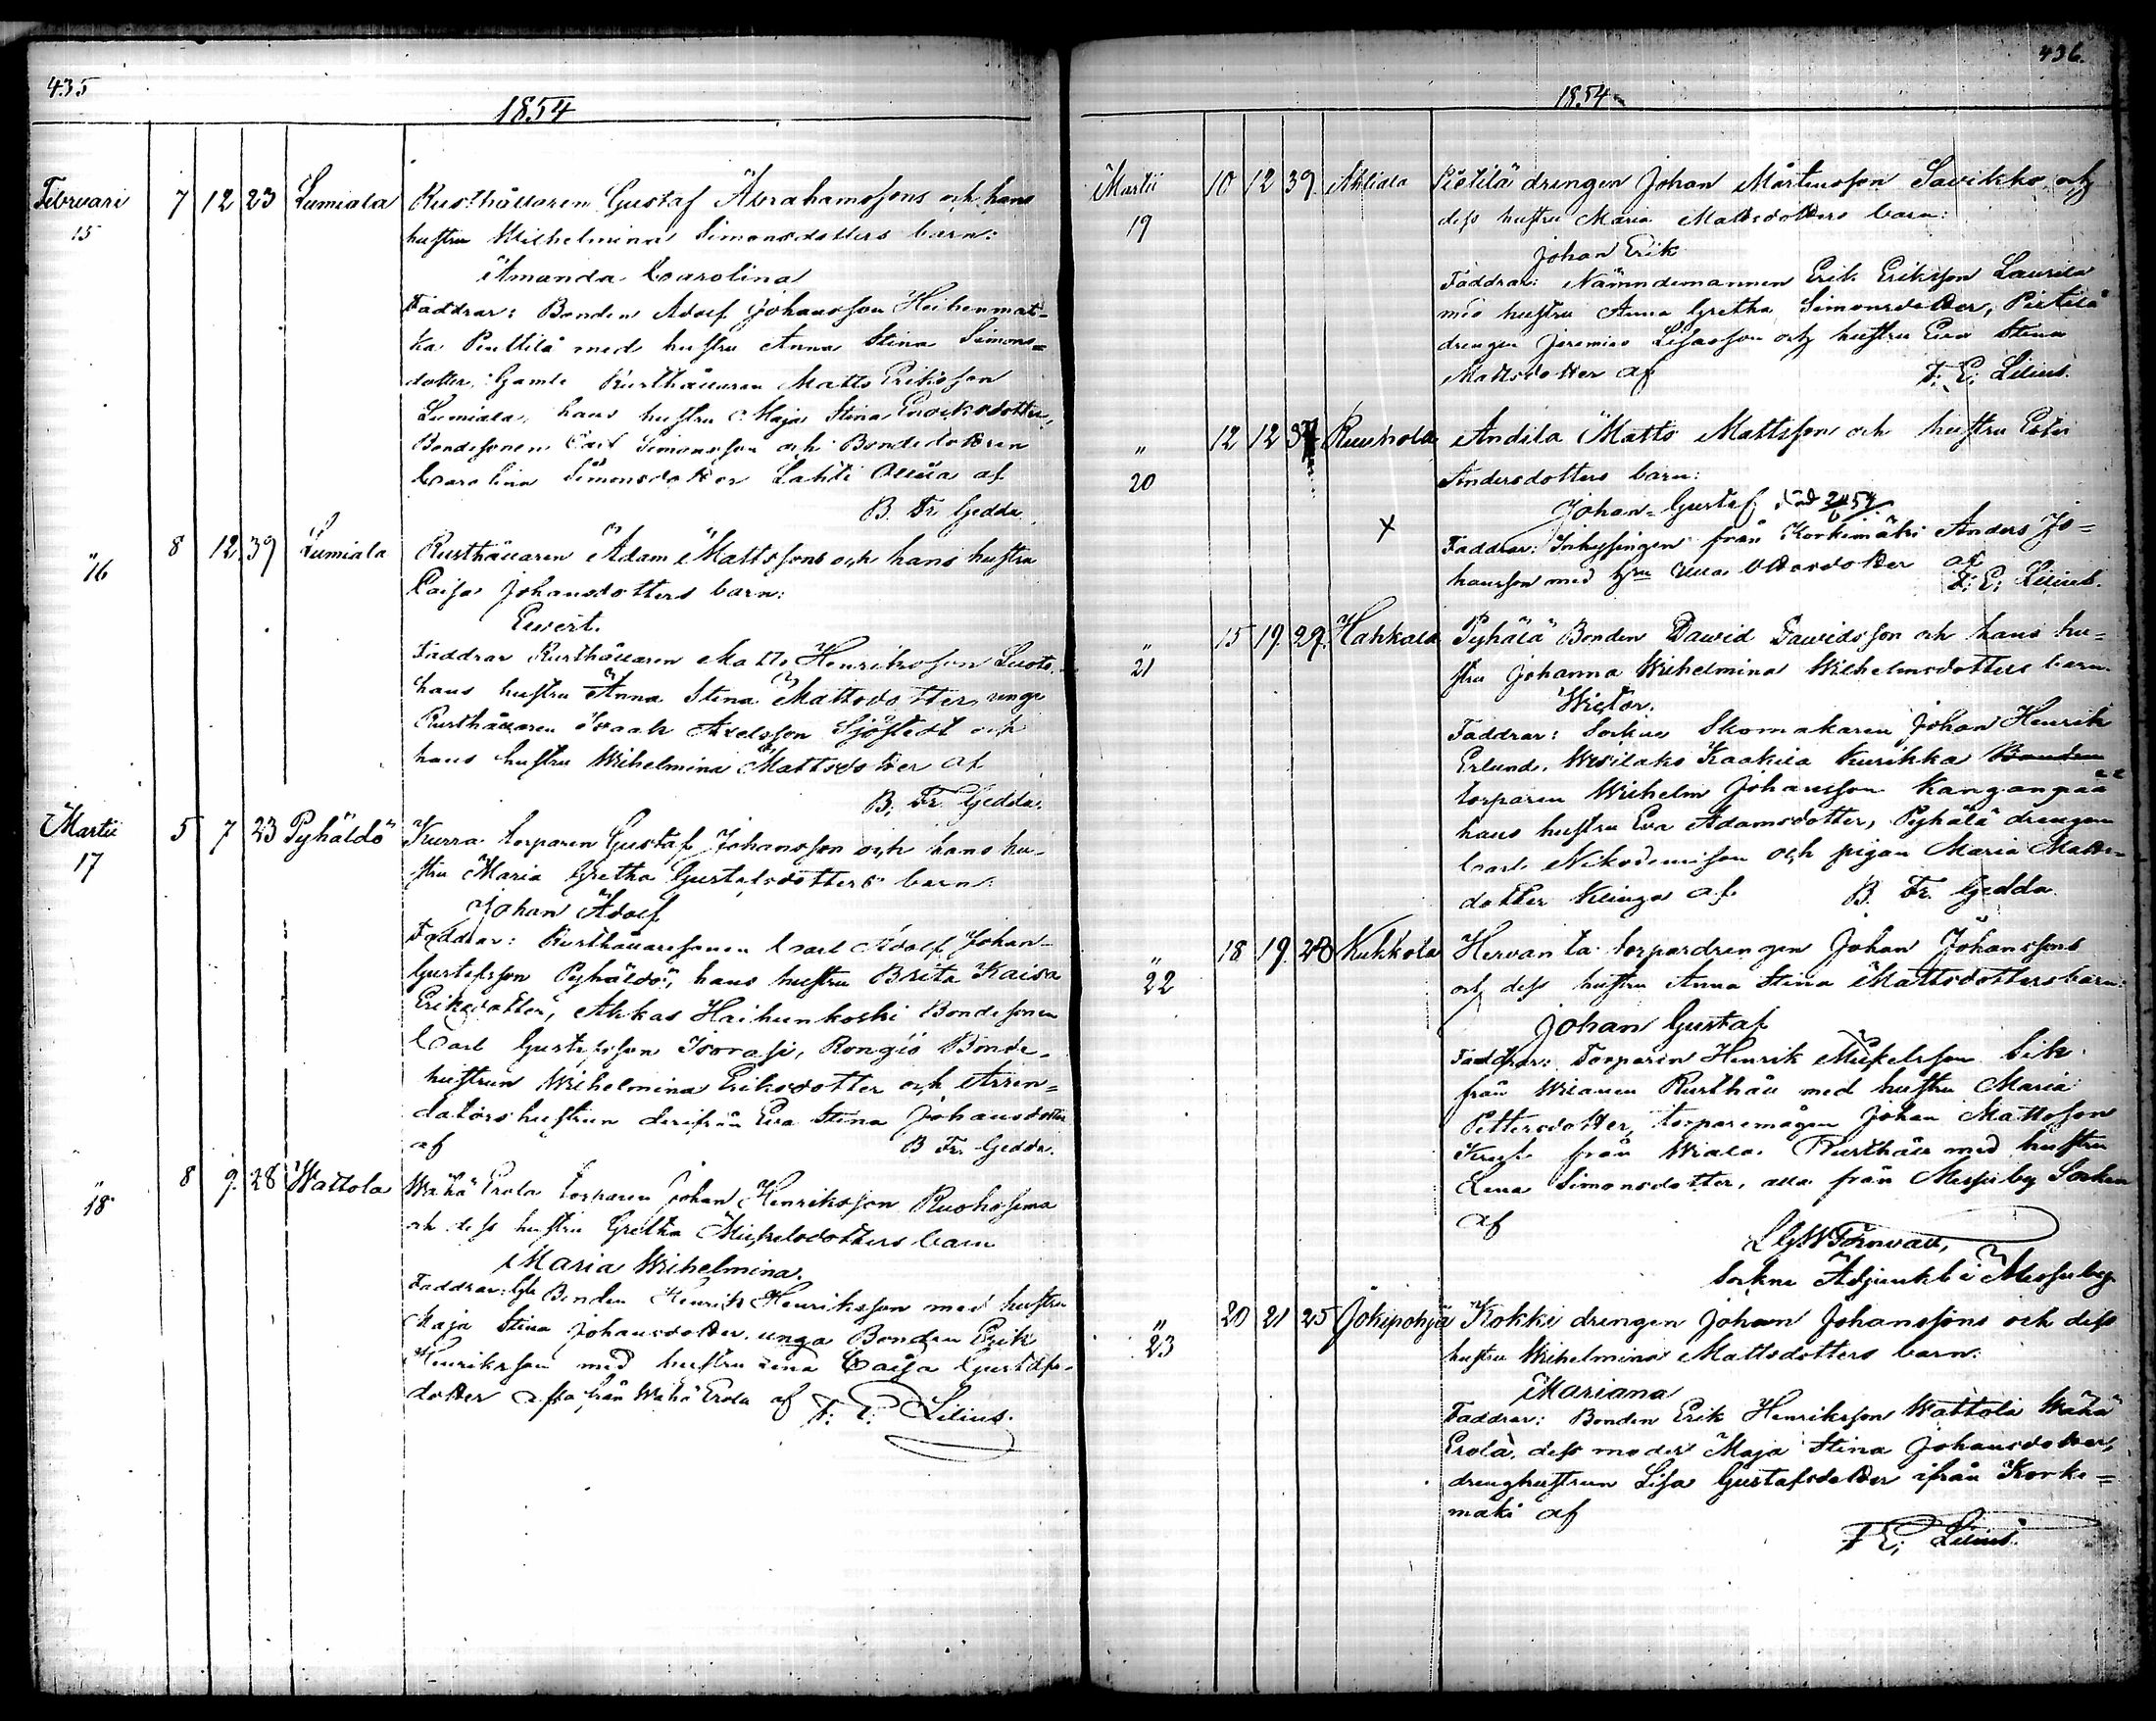 435
1854
Februari 7 12 23 Lumiala Rusthållaren Gustaf Abrahamssons och hans
15 hustru Wilhelmina Simonsdotters barn:
Amanda Carolina
Faddrar: Bonden Adolf Johansson Heikenmat-
ka Penttilä med hustru Anna Stina Simons=
dotter, Gamle Rusthållaren Matts Eriksson
Lumiala, hans hustru Maja Stina
Bondesonen Carl Simonsson och Bondedottren
Carolina Simonsdotter Lahti af
B. Fr. Gedda.
" 8 12 39 Lumiala Rusthållaren Adam Mattssons och hans hustru
16 Caisa Johansdotters barn:
Ewert.
Faddrar Rusthållaren Matts Henriksson
hans hustru Anna Stina Mattsdotter, unge
Rusthållaren Isaak Axelsson Sjöstedt och
hans hustru Wilhelmina Mattsdotter af
B. Fr. Gedda.
Martii 5 7 23 Pyhäldö Kurra torparen Gustaf Johansson och hans hu-
17 stru Maria Gretha Gustafsdotters barn:
Johan Adolf
Faddrar: Rusthållaresonen Carl Adolf Johan-
Gustafsson Pyhäldö, hans hustru Brita Kaisa
Eriksdotter, Ahkas Haihunkoski Bondesonen
Carl Gustafsson Isorasi, Rongis Bonde-
hustrun Wilhelmina Eriksdotter och Arren=
datorshustrun derifrån Eva Stina Johansdotter
af B Fr. Gedda.
" 8 9. 28 Wattola Wähä Erola torparen Johan Henriksson Ruohosima
18 och dess hustru Gretha Michelsdotters barn
Maria Wilhelmina.
Faddrar: Gle Bonden Henrik Henriksson med hustru
Maja Stina Johansdotter, unga Bonden Erik
Henriksson med hustru Lena Caisa Gustafs-
dotter från Wähä Erola af F. E. Lilius.
436.
1854
Martii 10 12 39. Ahliala Pietilä drengen Johan Mårtensson Savikko och
19 dess hustru Maria Mattsdotters barn:
Johan Erik
Faddrar: Nämndemannen Erik Eriksson Laurila
med hustru Anna Gretha Simonsdotter, Pietilä
drengen Jeremias och hustru Eva Stina
Mattsdotter af F. E. Lilius.
" 12 12 37 Ruuhola Andila Matts Mattsson och hustru
20 Andersdotters barn:
Johan Gustaf död
x Faddrar: Inhysingen från Korkimäki Anders Jo=
hansson med hru Ulla af
F. E. Lilius.
" 15 19. 29. Hahkala Pyhälä Bonden David Davidsson och hans hu=
21 stru Johanna Wilhelmina Wilhelmsdotters barn.
Wictor.
Faddrar: Sockne Skomakaren Johan Henrik
Erlund, Wesilaks Kaakila Kurikka Bonden
torparen Wilhelm Johansson Kanganpää
hans hustru Eva Adamsdotter, Pyhälä drengen
Carl Nikodemisson och pigan Maria Matts-
dotter Klinga af B. Fr. Gedda.
" 18 19. 28 Kuhkola Hervanta torpardrengen Johan Johanssons
22 och dess hustru Anna Stina Mattsdotters barn:
Johan Gustaf
Faddrar: Torparen Henrik Mickelsson
från Rusthåll med hustru Maria
Pettersdotter, torparemågen Johan Mattsson
från Rusthåll med hustru
Lena Simonsdotter, alla från Messuby Socken
af
Sockne Adjunkt i Messuby
" 20 21 25 Jokipohja Kokki drengen Johan Johanssons och dess
23 hustru Wilhelmina Mattsdotters barn.
Mariana
Faddrar: Bonden Erik Henriksson Wattola Wähä
Erola, dess moder Maja Stina Johansdotter,
drenghustrun Lisa Gustafsdotter ifrån Korke=
mäki af
F. E. Lilius.